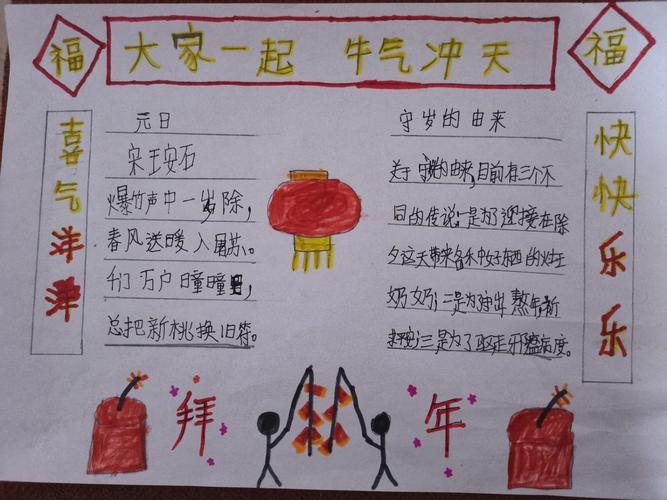 福 大家一起 牛气冲天 福
喜气洋洋
元日
宋王安石
爆竹声中一岁除,
春风送暖入屠苏。
千门万户曈曈日,
总把新桃换旧符。
守岁的由来
关于守岁的由来,目前有三个不
同的传说:一是为了迎接在除
夕这天带来各种好东西的灶王
奶奶;二是为 熬年祈
三是为了驱走邪瘟病度。
快快乐乐
拜 年